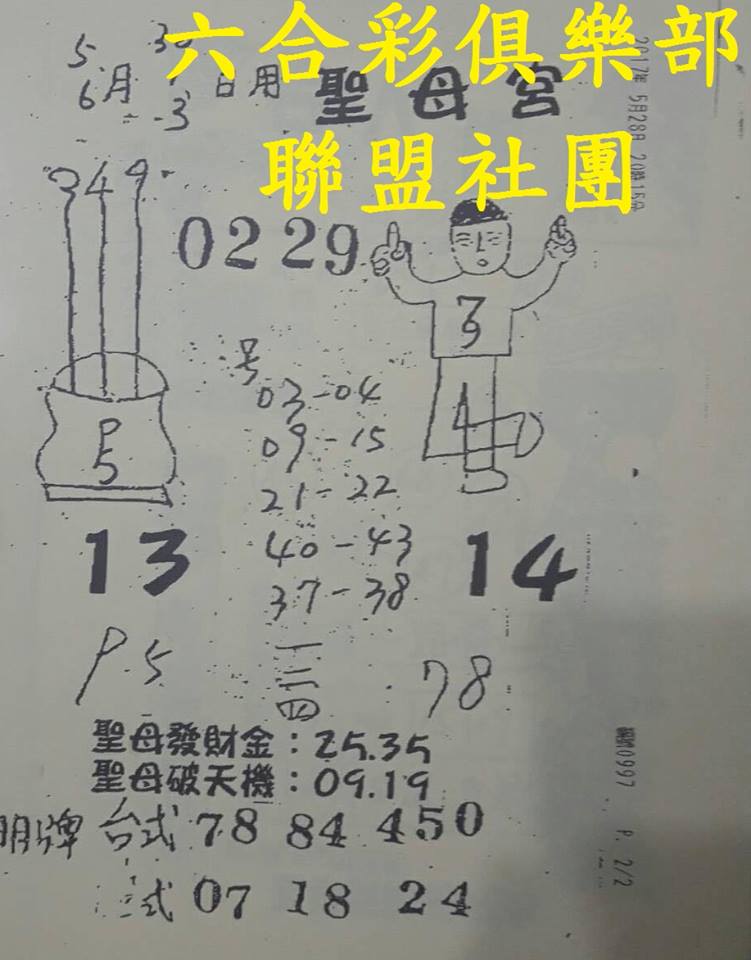 六合彩俱樂部
聯盟社團
5 30
6月 1 日用
3
聖母宮
2017年 5月28日 20時15分
02 29
7
9
5
号
03-04
09-15
21-22
40-43
37-38
13
14
P.5
一
三
四
78
聖母發財金:25.35
聖母破天機:09.19
明牌 台式 78 84 450
式 07 18 24
0997 P. 2/2